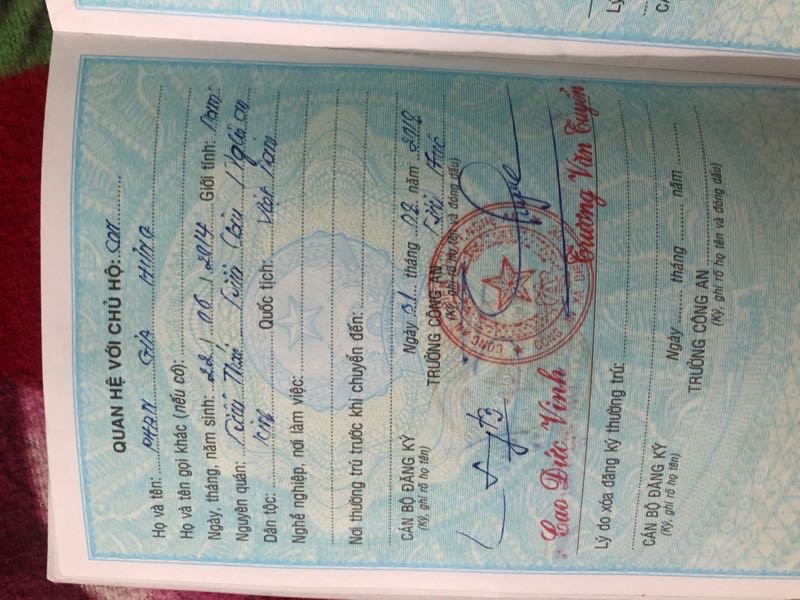 QUAN HỆ VỚI CHỦ HỘ: con
Họ và tên: PHAN GIA HƯNG
Họ và tên gọi khác (nếu có):
Ngày, tháng, năm sinh: 22 / 06 / 2014 Giới tính: Nam
Nguyên quán: Diễn Châu Nghệ an
Dân tộc: Kinh Quốc tịch: Việt Nam
Nghề nghiệp, nơi làm việc:
Nơi thường trú trước khi chuyển đến:
CÁN BỘ ĐĂNG KÝ Ngày 01 tháng 02 năm
(Ký, ghi rõ họ tên) TRƯỞNG CÔNG AN Diễn
(Ký, ghi rõ họ tên và đóng dấu)
CÔNG AN XÃ DIỄN
Cao Đức Vinh Trương Văn Tuyển
Lý do xóa đăng ký thường trú:
CÁN BỘ ĐĂNG KÝ Ngày tháng năm
(Ký, ghi rõ họ tên) TRƯỞNG CÔNG AN
(Ký, ghi rõ họ tên và đóng dấu)